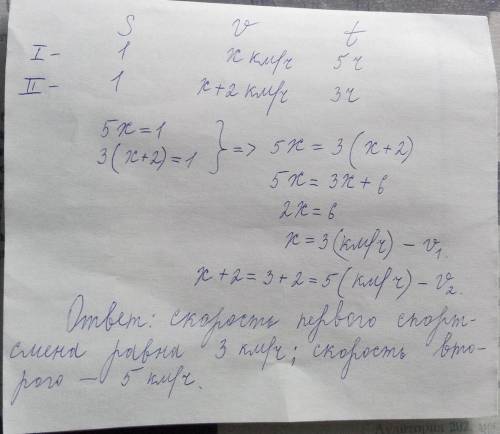 S v t
I - 1 x км/ч 5 ч
II - 1 x+2 км/ч 3 ч
5x = 1
3(x+2) = 1 } => 5x = 3(x+2)
5x = 3x + 6
2x = 6
x = 3 (км/ч) - v₁.
x + 2 = 3 + 2 = 5 (км/ч) - v₂.
Ответ: скорость первого спорт-
смена равна 3 км/ч; скорость вто-
рого — 5 км/ч.